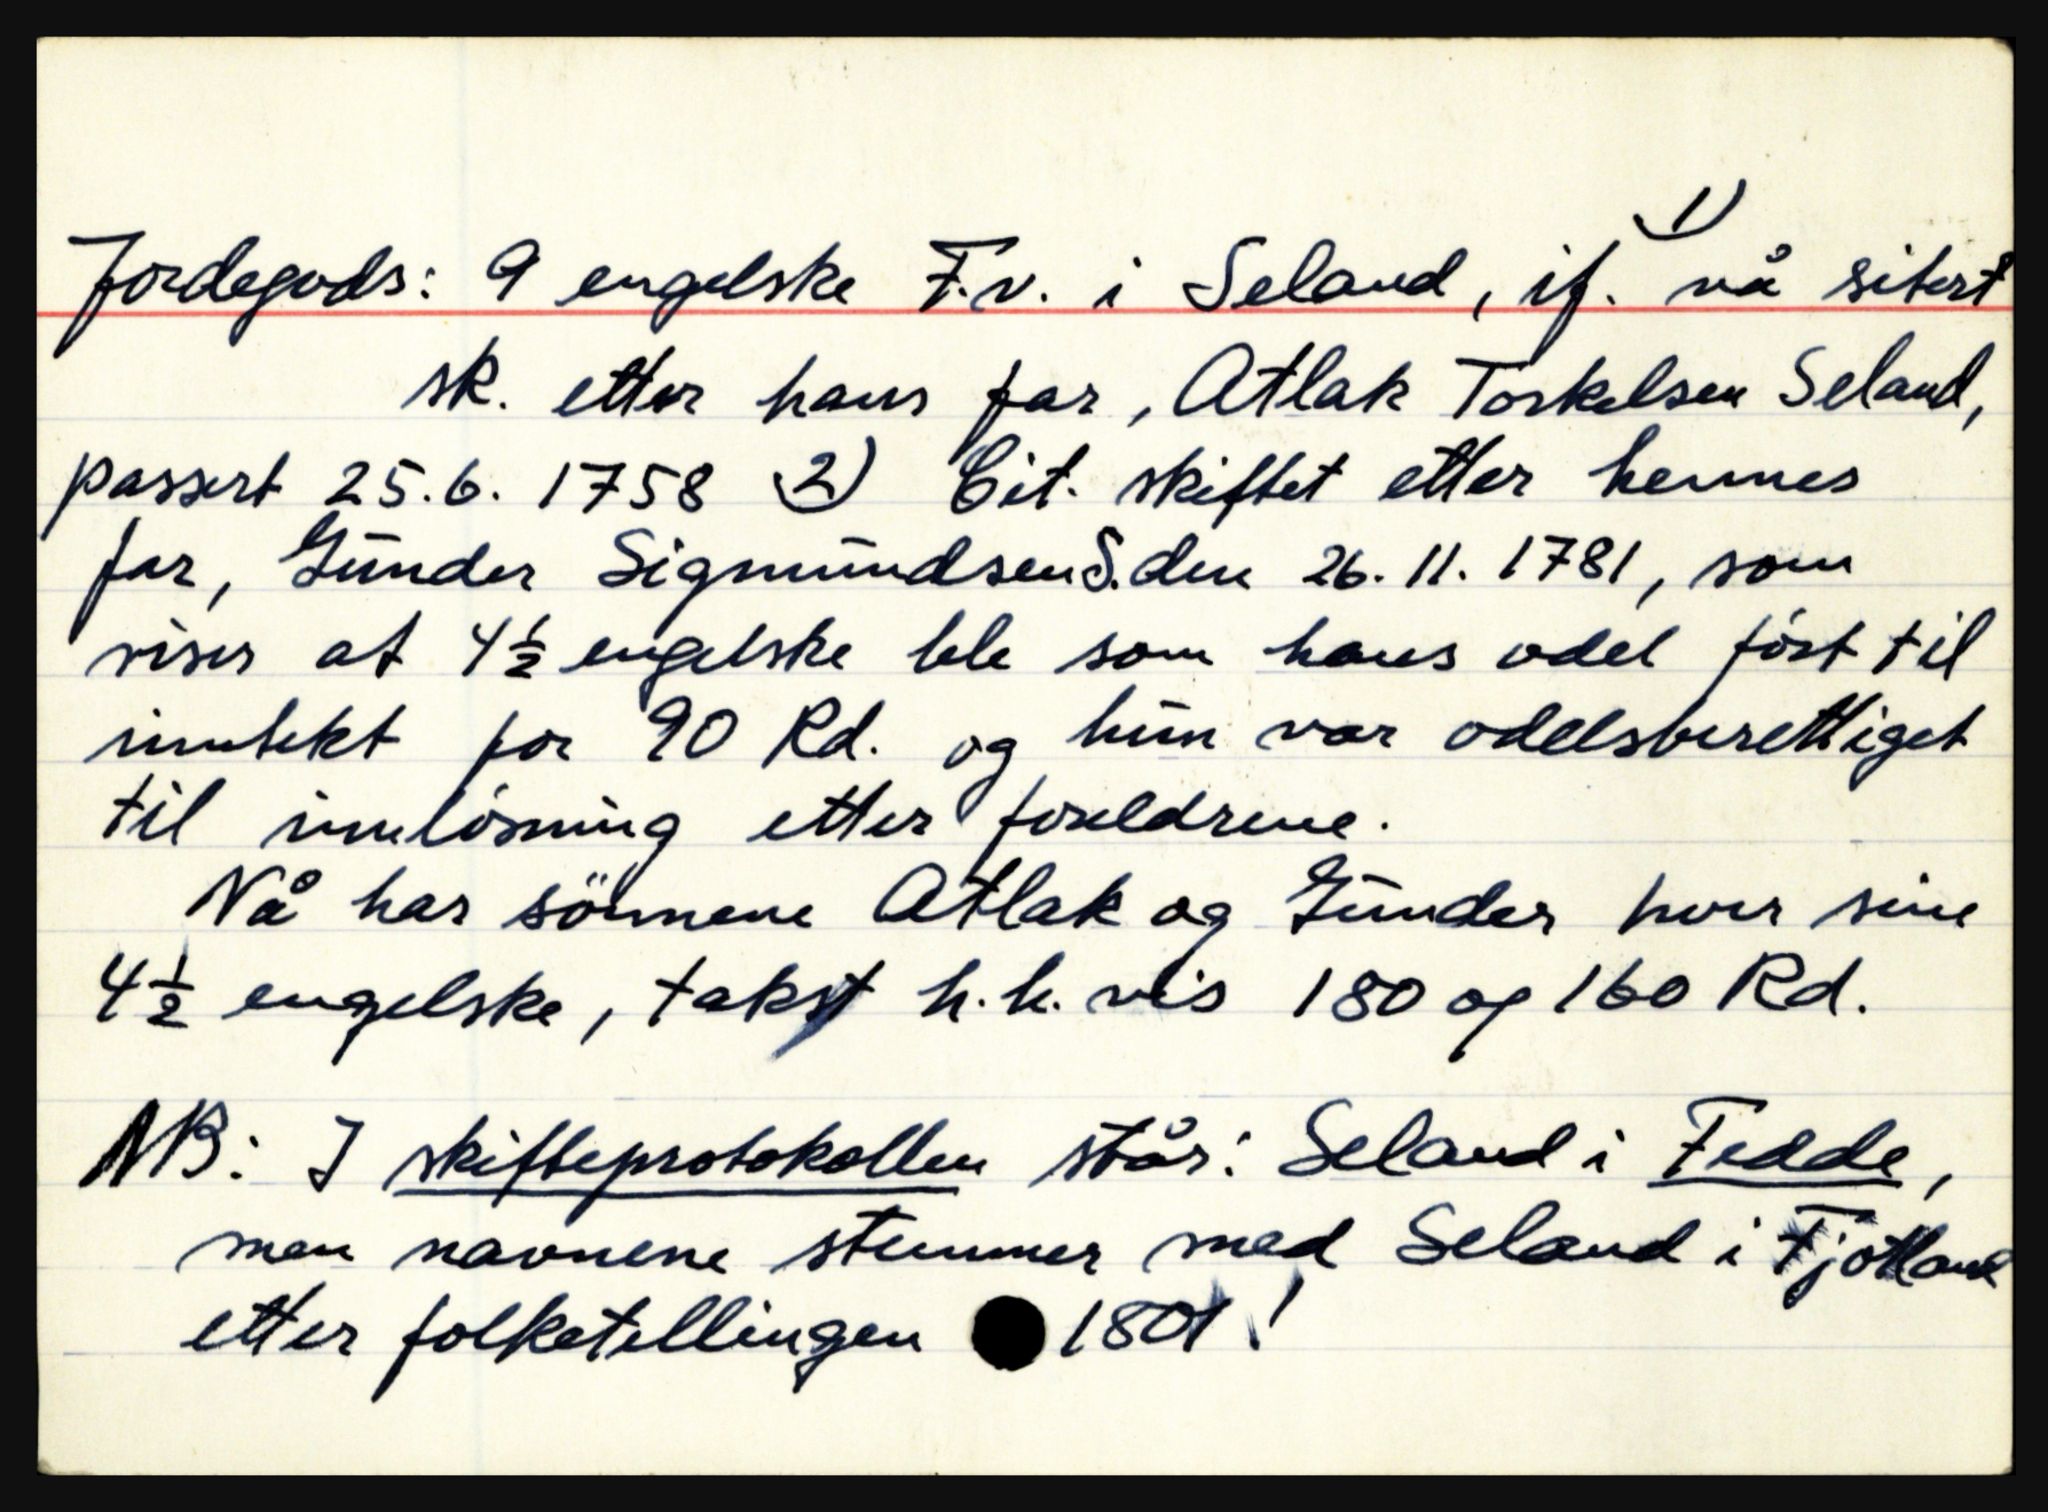 1)
Jordegods: 9 engelske F.v. i Seland, if. nå sitert
sk. etter hans far, Atlak Torkelsen Seland,
passert 25.6. 1758 2) Cit. skiftet etter hennes
far, Gunder Sigmundsen S. den 26.11. 1781, som
viser at 4 1/2 engelske ble som hans odel ført til
inntekt for 90 Rd. og hun var odelsberettiget
til innløsning etter foreldrene.
Nå har sönnene Atlak og Gunder hver sine
4 1/2 engelske, takst h.h. vis 180 og 160 Rd.
NB: I skifteprotokollen står: Seland i Fedde,
men navnene stemmer med Seland i Fjotland
etter folketellingen 1801!